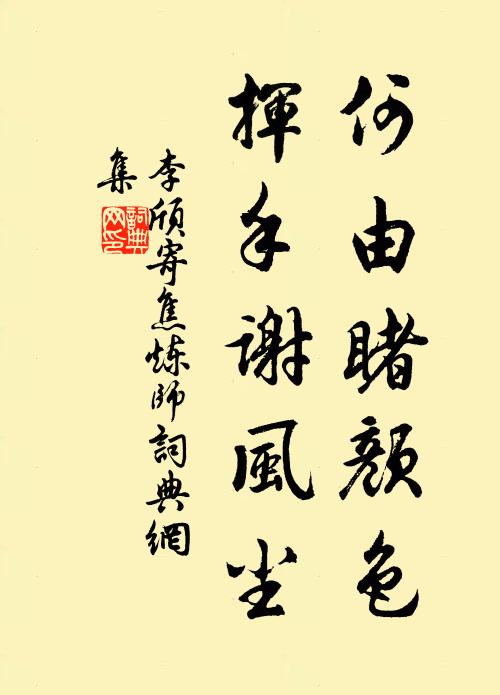 何由睹顏色
揮手謝風塵
李頎寄焦煉師詞典網
集
詞典
网印